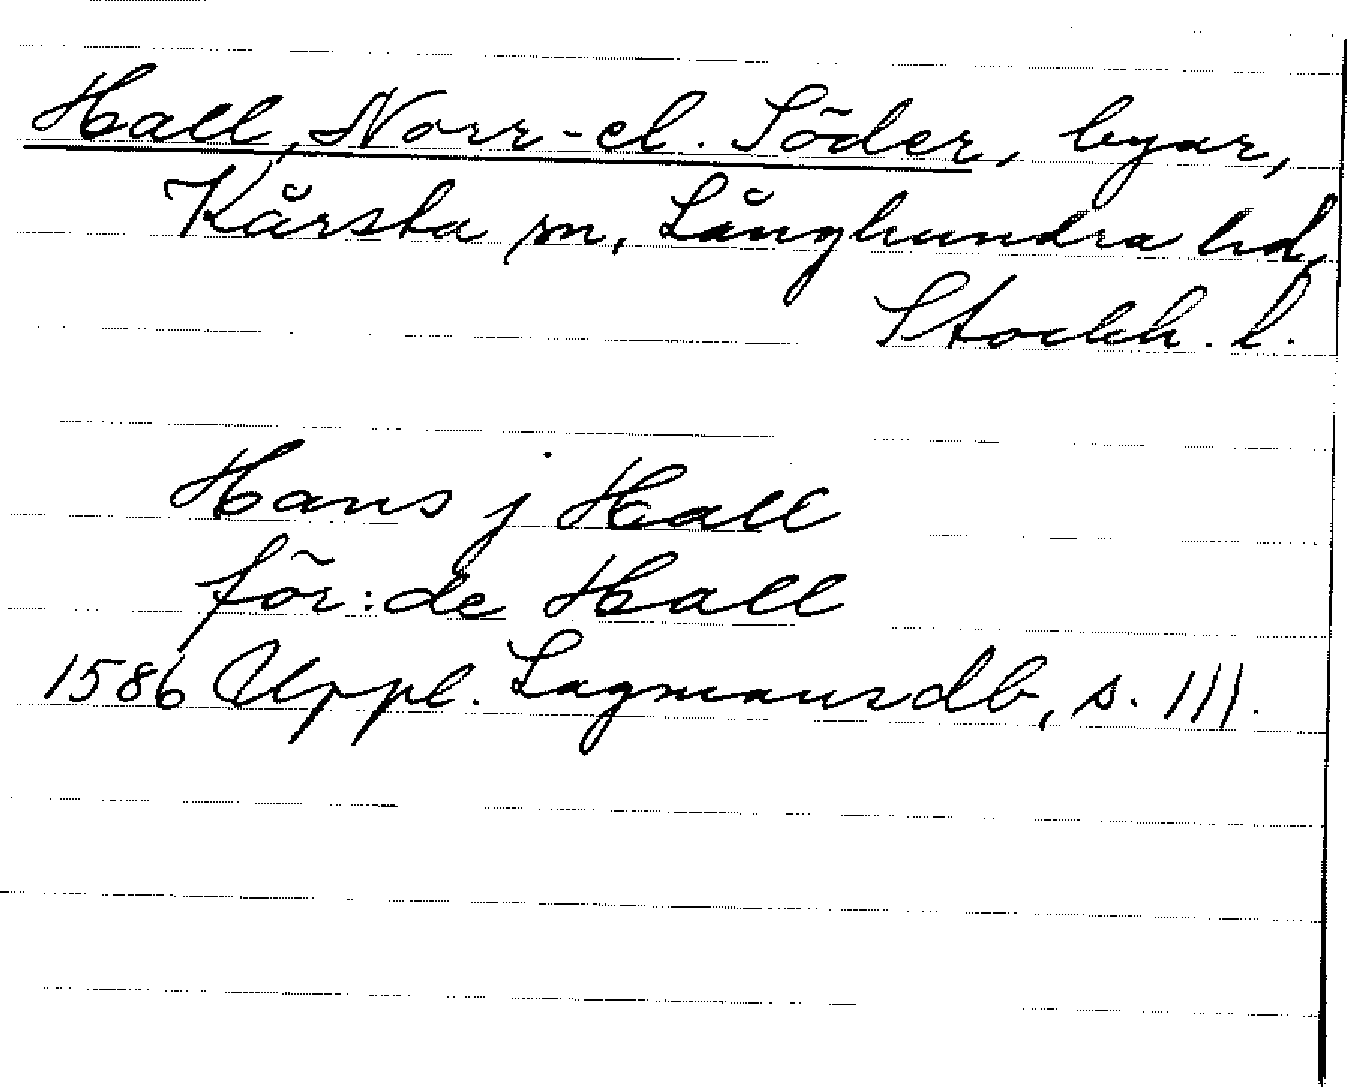 Hall, Norr- el. Söder, byar,
Kårsta sn, Långhundra hd,
Stockh. l.
Hans j Hall
för: de Hall
1586 Uppl. Lagmansdb, s. 111.